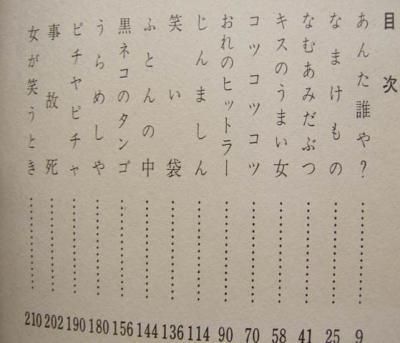 目次
あんた誰や？…………9
なまけもの…………25
なむあみだぶつ…………41
キスのうまい女…………58
コツコツコツ…………70
おれのヒットラー…………90
じんましん…………114
笑い袋…………136
ふとんの中…………144
黒ネコのタンゴ…………156
うらめしや…………180
ピチャピチャ…………190
事故死…………202
女が笑うとき…………210